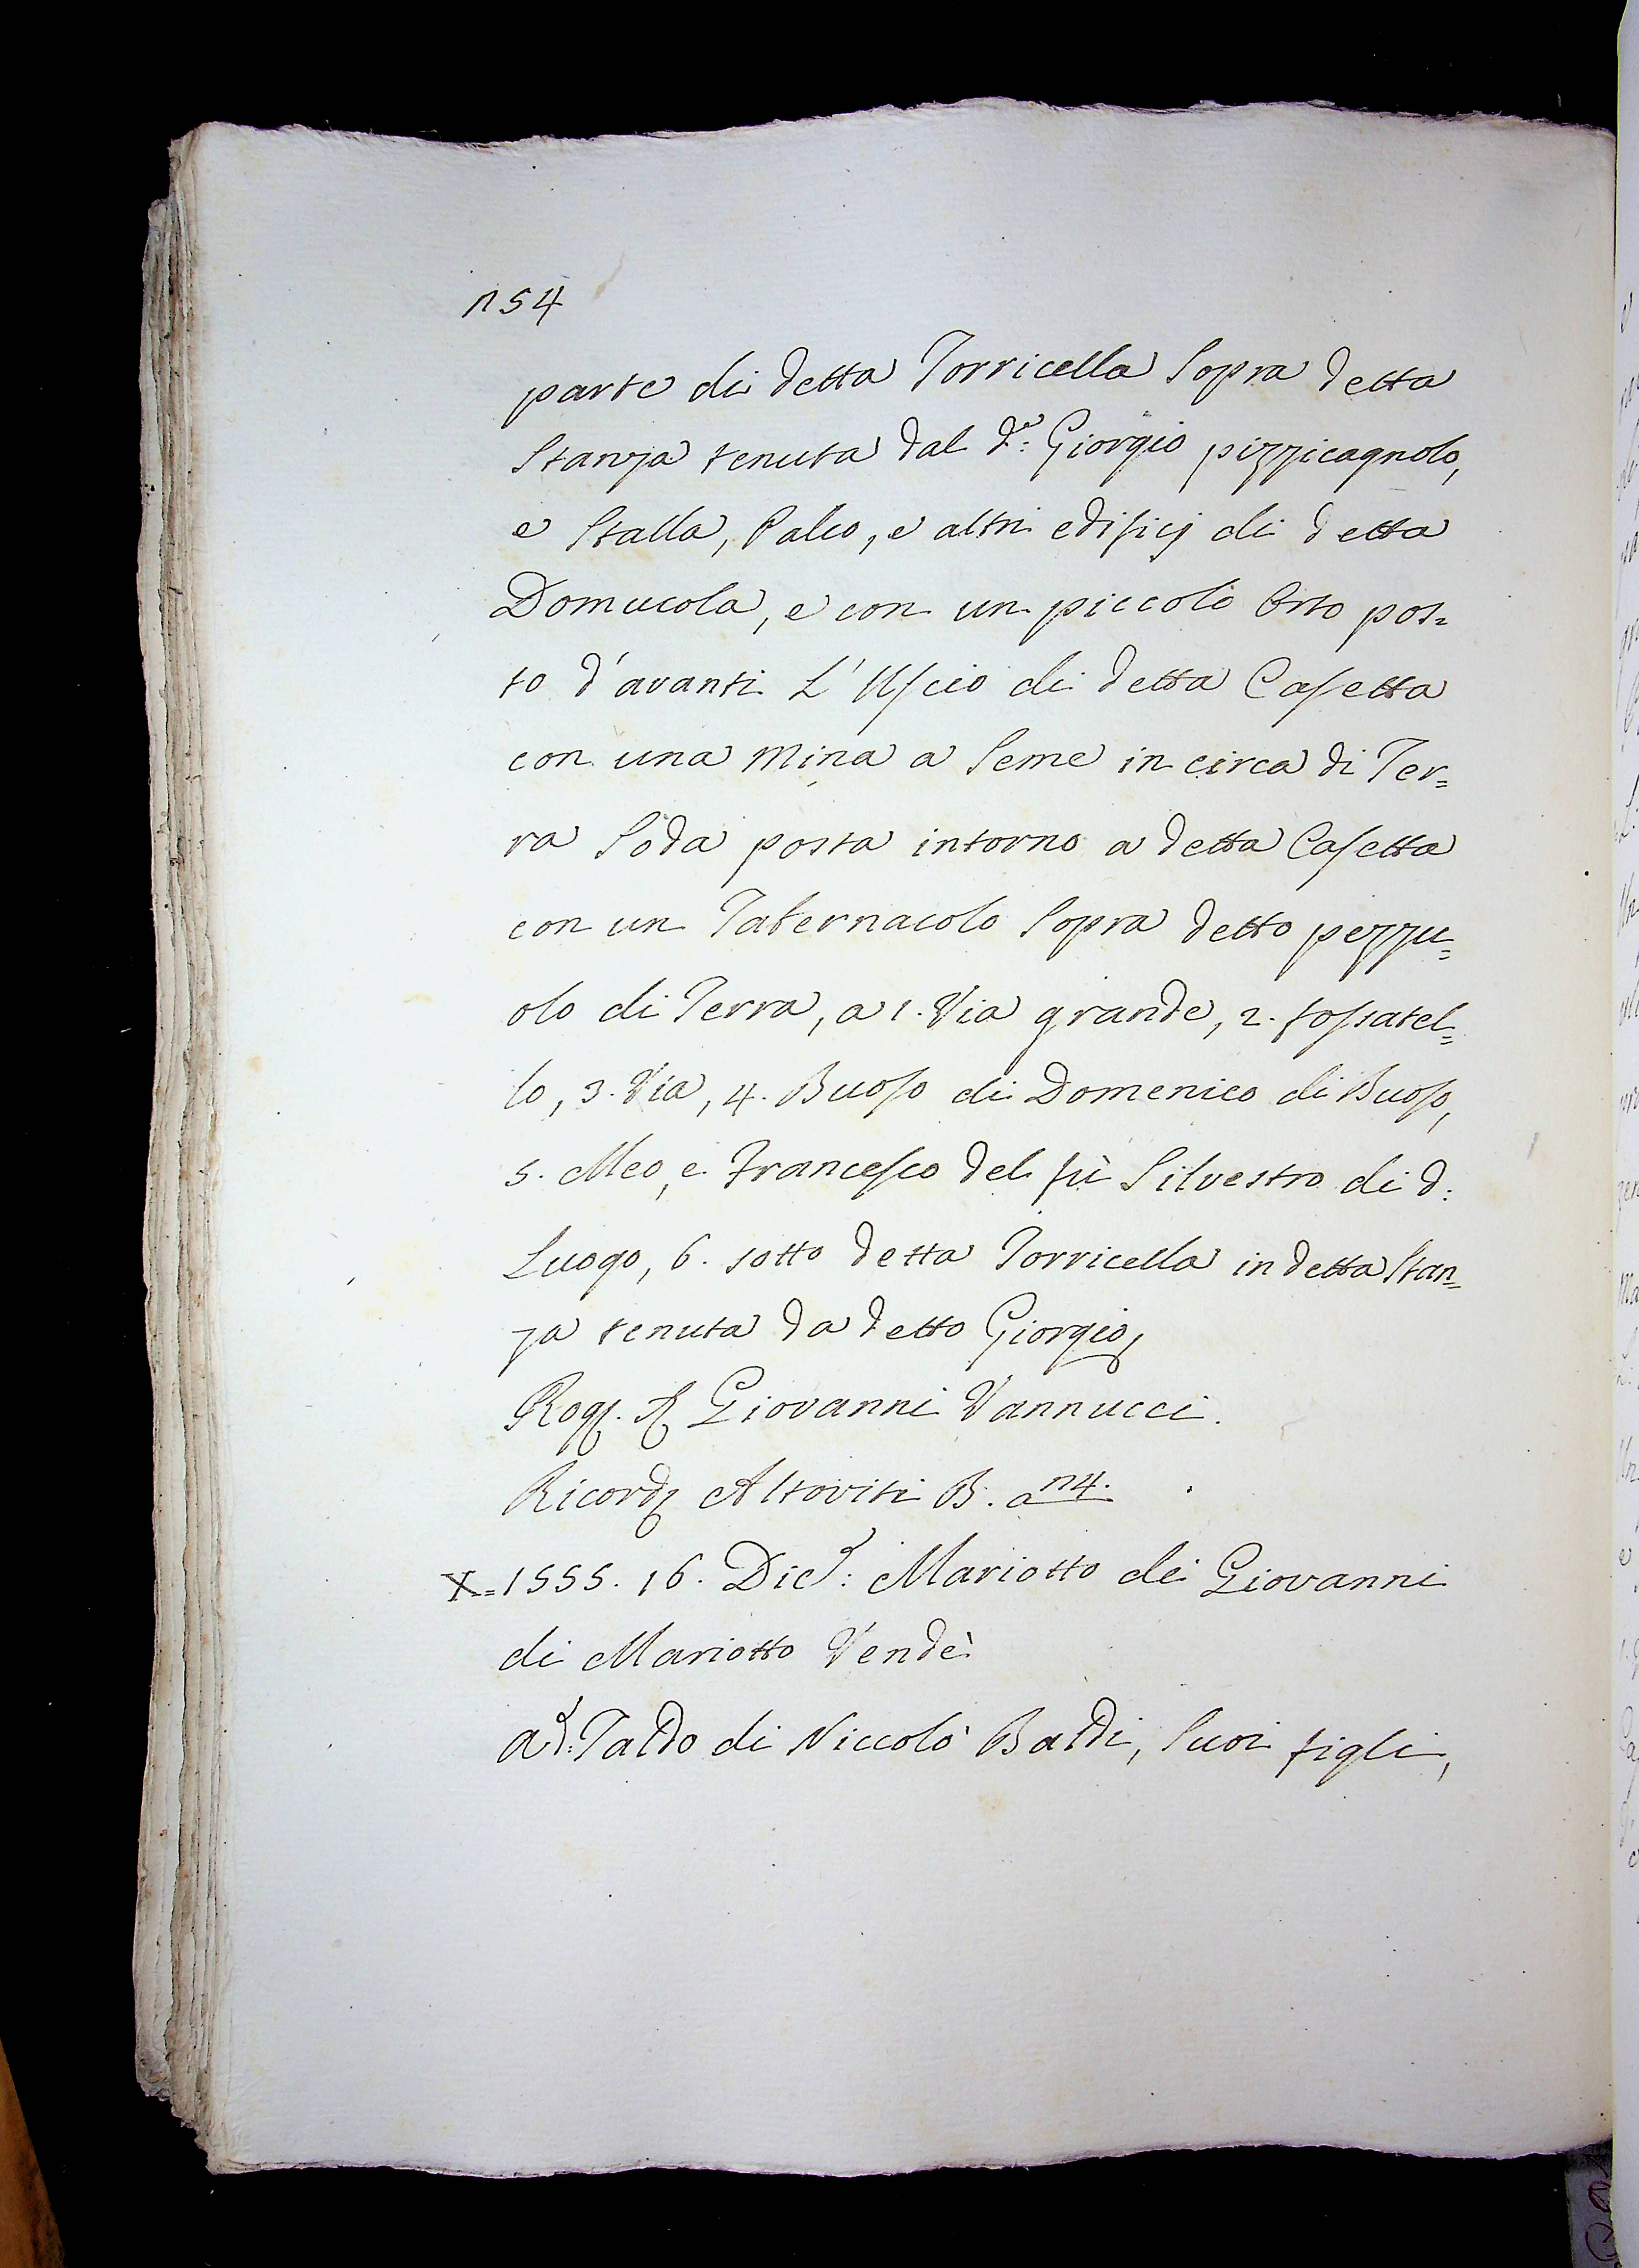 154
parte di detta Torricella Sopra detta
Stanza tenuta dal d.º: Giorgio pizzicagnolo,
e Stalla, Palco, e altri edificj di detta
Domucola, e con un piccolo Orto pos=
to d'avanti L'Uscio di detta Casetta
con una Mina a Seme in circa di Ter=
ra Soda posta intorno a detta Casetta
con un Tabernacolo Sopra detto pezzu=
olo di Terra, a 1. Via grande, 2. fossatel=
lo, 3. Via, 4. Buoso di Domenico di Buoso,
5. Meo, e Francesco del fù Silvestro di d:
Luogo, 6. sotto detta Torricella in detta Stan=
za tenuta da detto Giorgio,
Rog. Giovanni Vannucci.
Ricord Altoviti B. a 114.
X=1555. 16. Dic: Mariotto di Giovanni
di Mariotto Vendè
a d: Taddo di Niccolò Baldi, Suoi figli,